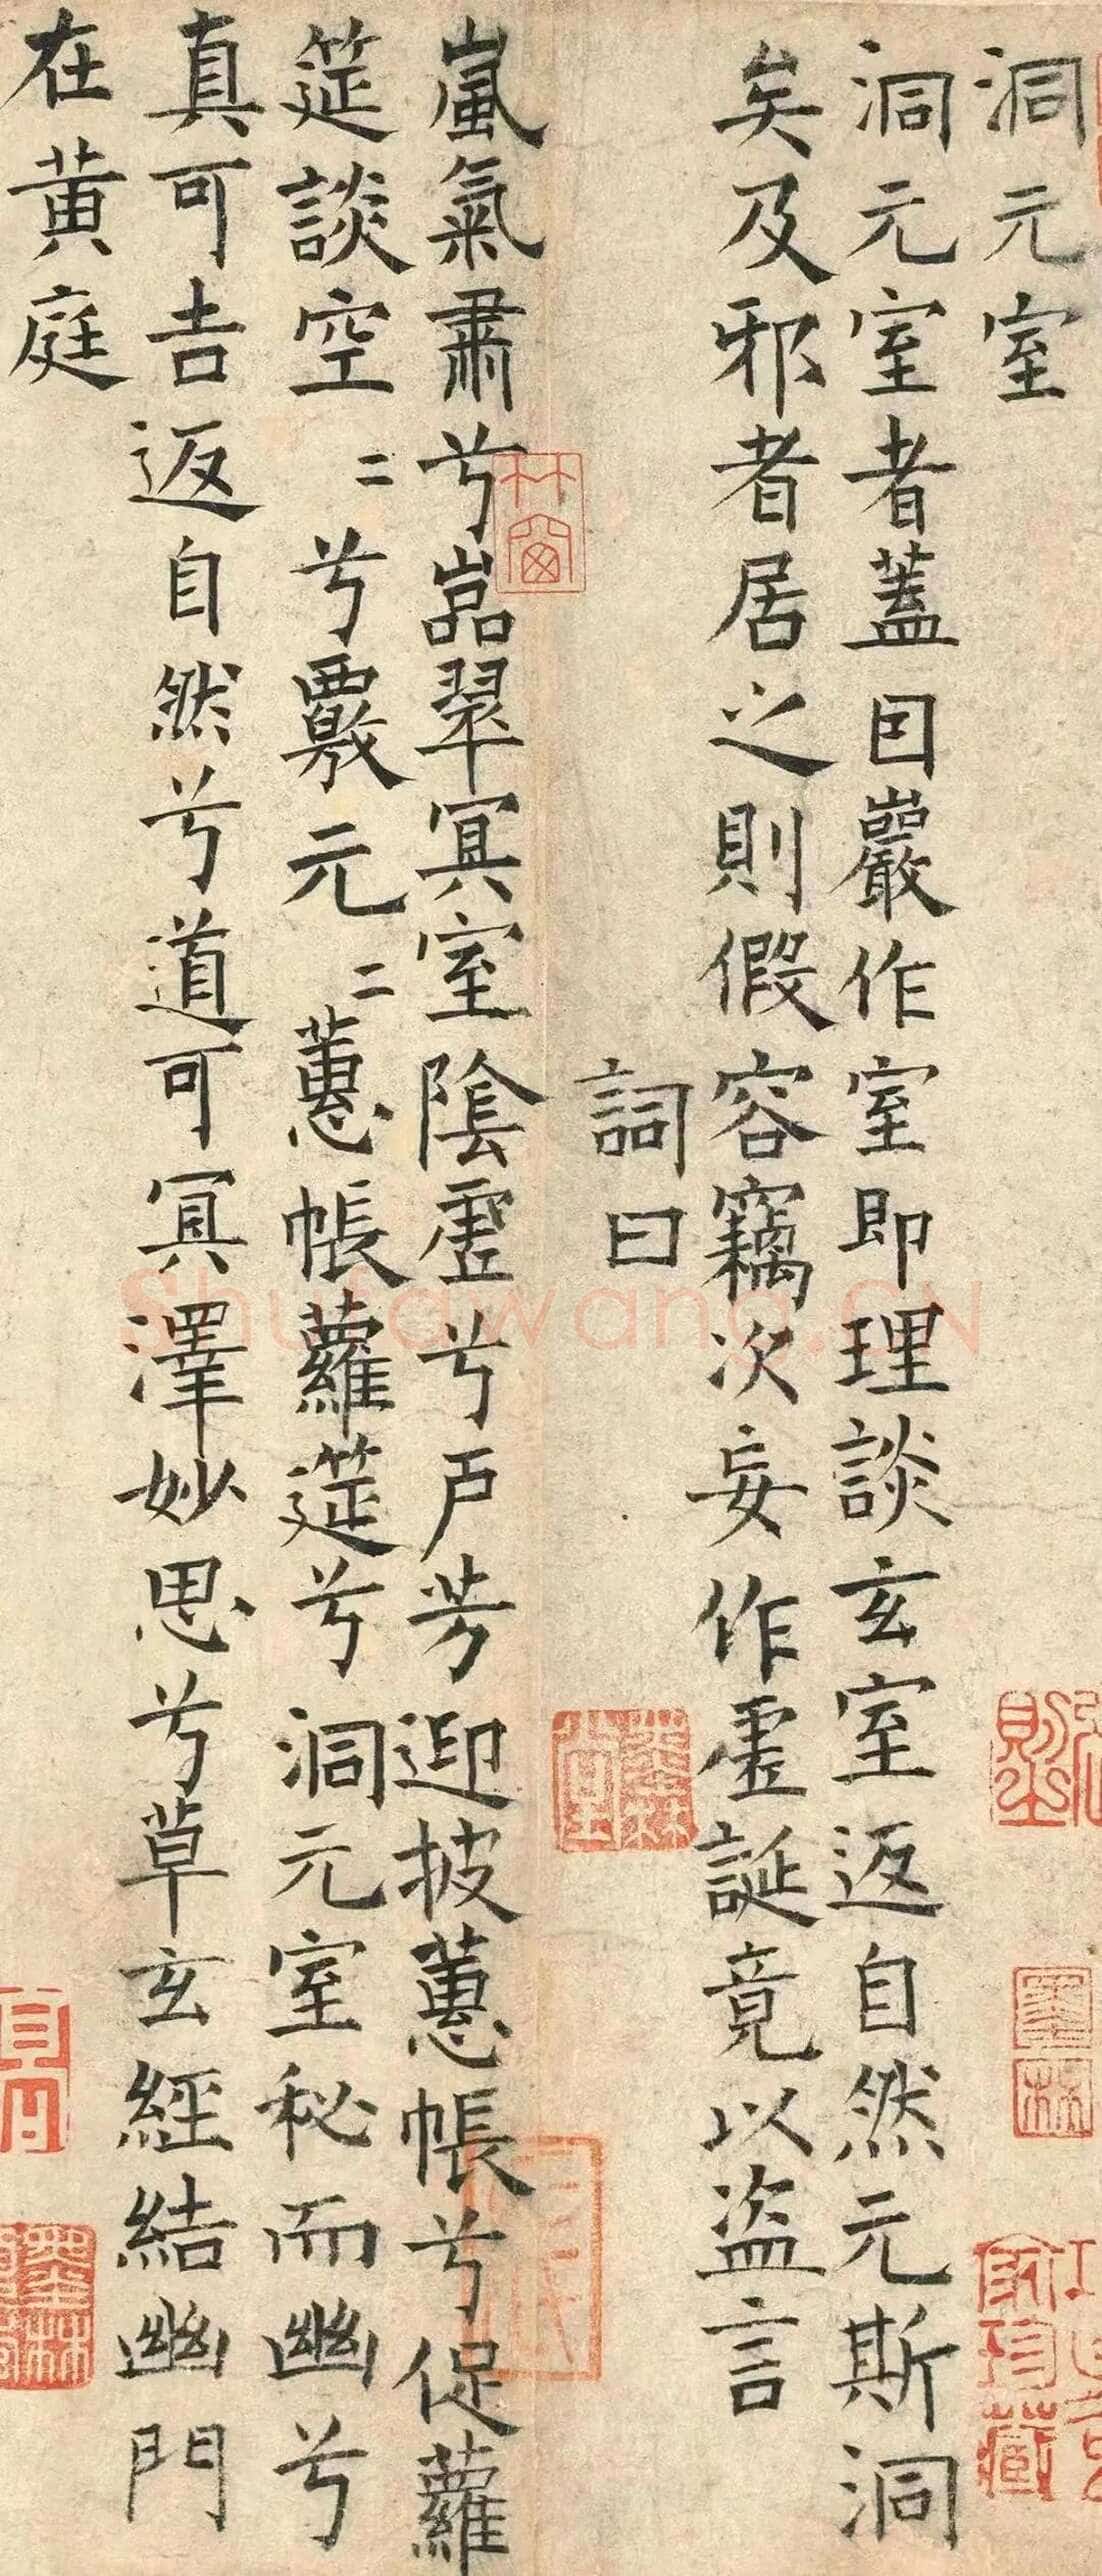 洞元室
洞元室者蓋因巖作室即理談玄室返自然元斯洞
矣及邪者居之則假容竊次妄作虛誕竟以盜言
詞曰
嵐氣肅兮嵓翠冥室陰虛兮戶芳迎披蕙帳兮促蘿
筵談空〻兮覈元〻蕙帳蘿筵兮洞元室秘而幽兮
真可吉返自然兮道可冥澤妙思兮草玄經結幽門
在黃庭
竹窗
墨林
Shufawang.CN